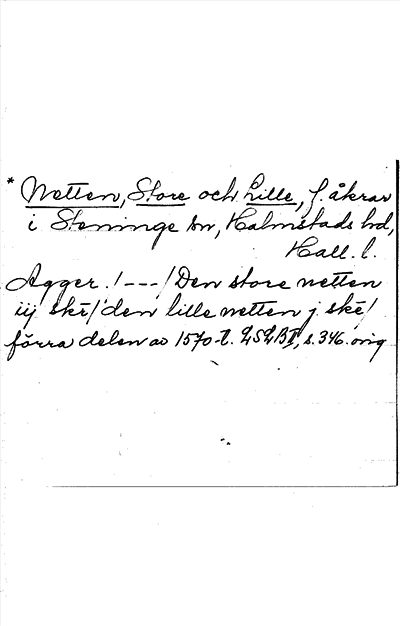 * Netten, Store och Lille, f. åkrar
i Steninge sn, Halmstads hd,
Hall. l.
Agger. /---/ Den store netten
iij skē/ den lille netten j skē/
förra delen av 1570-t. LSLB II, s. 346. orig